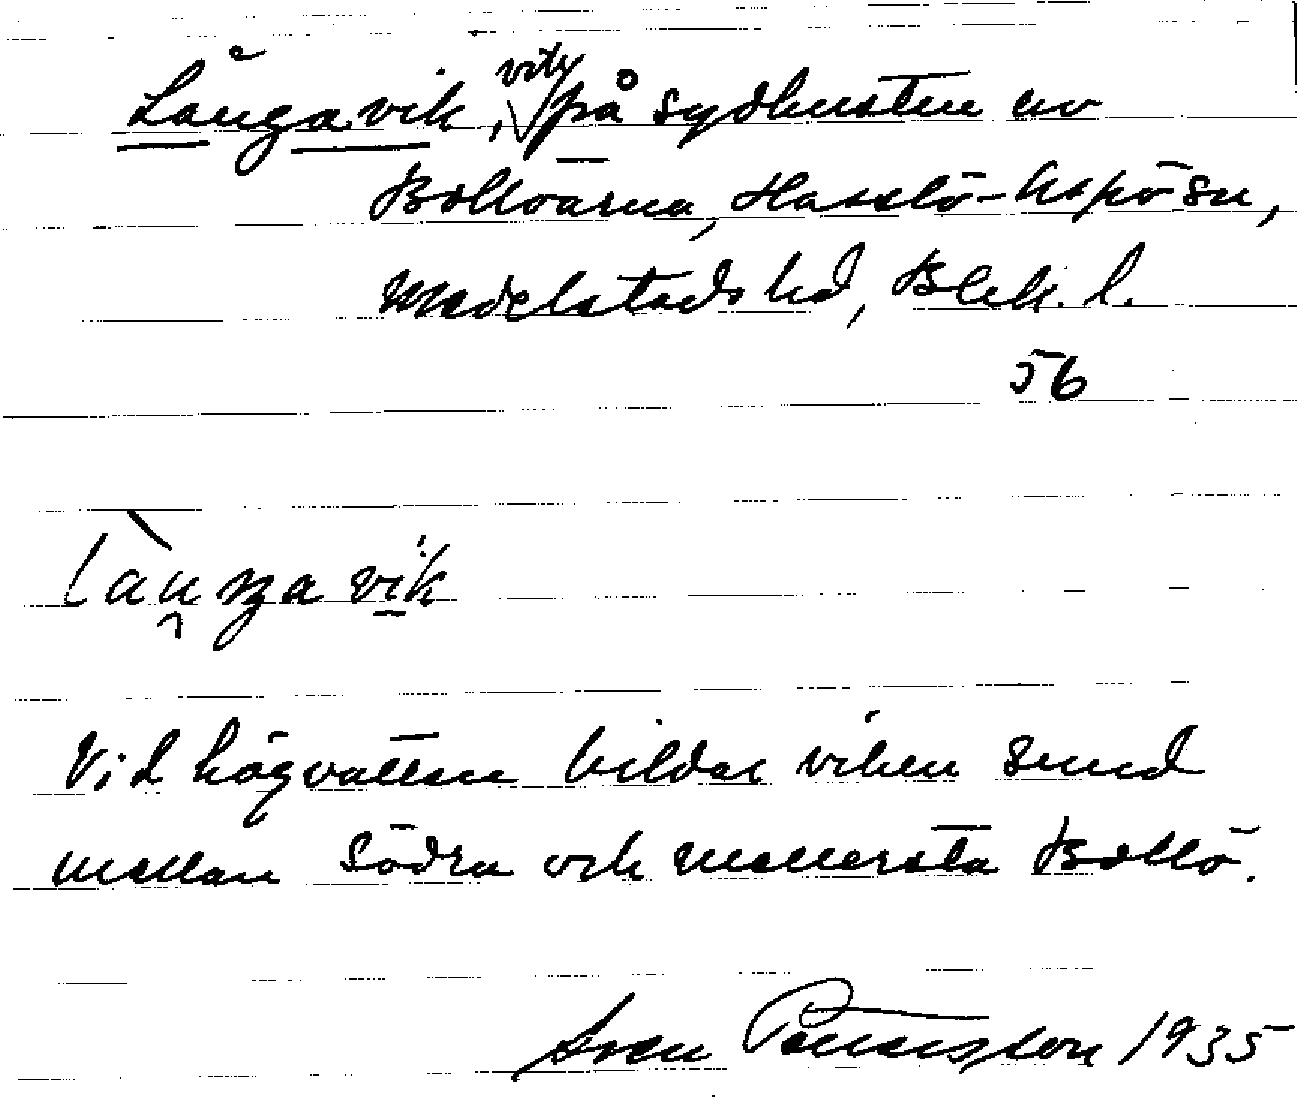 Långavik, vik, på sydkusten av
Bollöarna, Hasslö-Aspö sn,
Medelstads hd, Blek. l.
56
làuŋa vik
Vid högvatten bildar viken sund
mellan Södra och Mellersta Bollö.
Sven Pettersson 1935